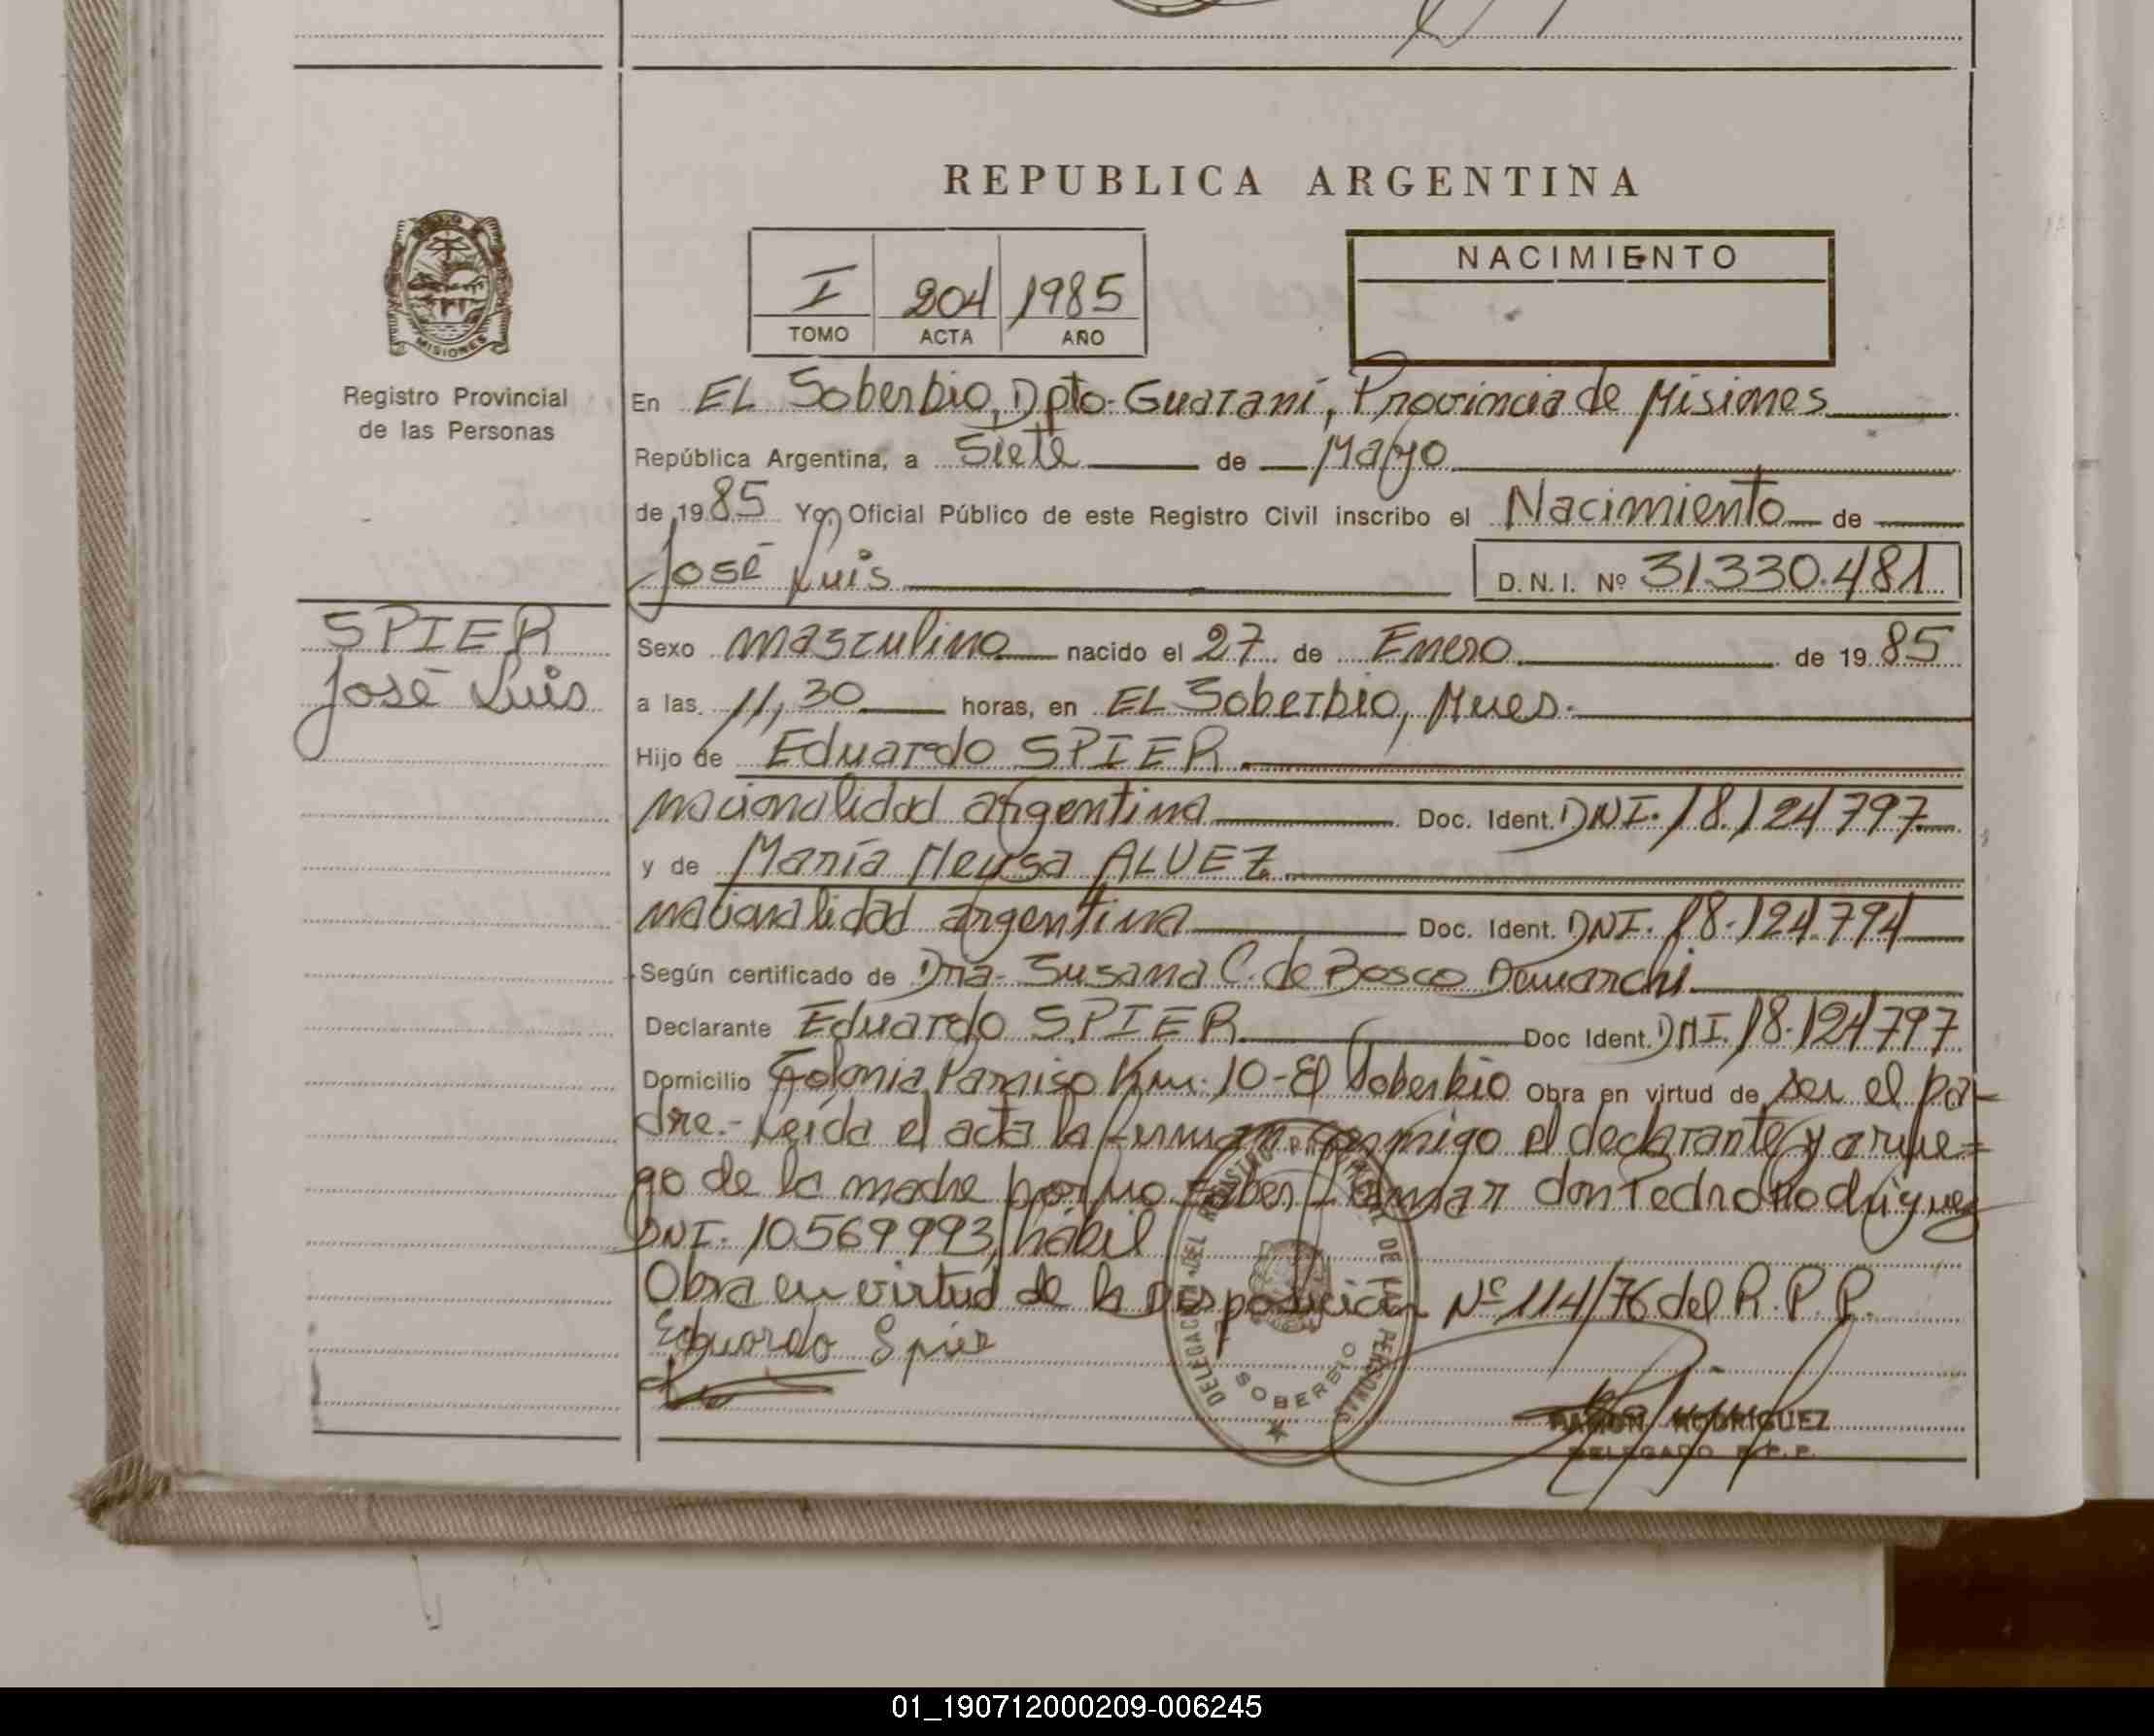 REPUBLICA ARGENTINA
I 204 1985
TOMO ACTA AÑO
NACIMIENTO
MISIONES
Registro Provincial
de las Personas
En EL Soberbio, Dpto. Guaraní, Provincia de Misiones
República Argentina, a Siete de Mayo
de 1985 Yo, Oficial Público de este Registro Civil inscribo el Nacimiento de
José Luis D.N.I. Nº 31.330.481
SPIER
José Luis
Sexo masculino nacido el 27 de Enero de 1985
a las 11,30 horas, en EL Soberbio, Mnes.
Hijo de Eduardo SPIER
nacionalidad argentina Doc. Ident. DNI. 18.124797
y de María Neusa ALVEZ
nacionalidad argentina Doc. Ident. DNI. 18.124.794
Según certificado de Dra. Susana C. de Bosco Demarchi
Declarante Eduardo SPIER Doc Ident. DNI. 18.124797
Domicilio Colonia Paraiso Km. 10-El Soberbio Obra en virtud de ser el pa-
dre.- Leída el acta la firman conmigo el declarante y a rue=
go de la madre por no saber firmar don Pedro Rodríguez
DNI. 10569993, hábil
Obra en virtud de la Disposición Nº 114/76 del R.P.P.
Eduardo Spier
DELEGACION DEL REGISTRO PROVINCIAL DE LAS PERSONAS
SOBERBIO
RAMON RODRIGUEZ
DELEGADO R.P.P.
01_190712000209-006245